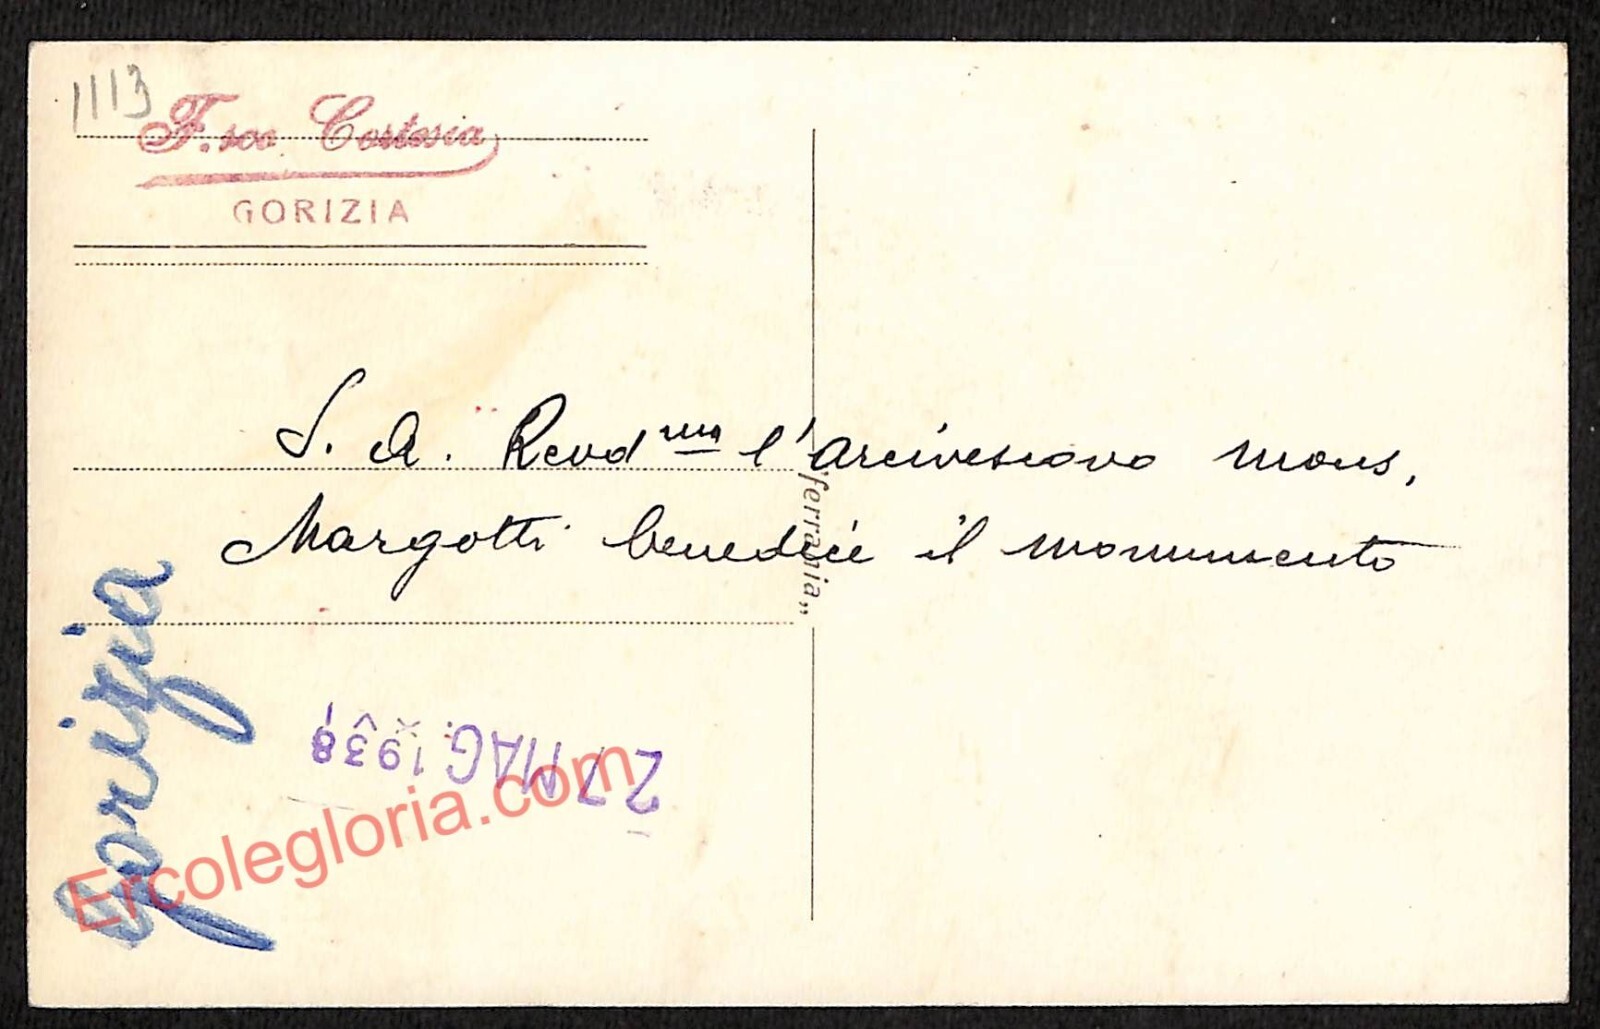 1113
F.sco Cortesia
GORIZIA
S. A. Revd ma l'arcivescovo mons.
Margotti benedice il monumento
"ferrania"
Gorizia
27 MAG. 1938
Ercolegloria.com